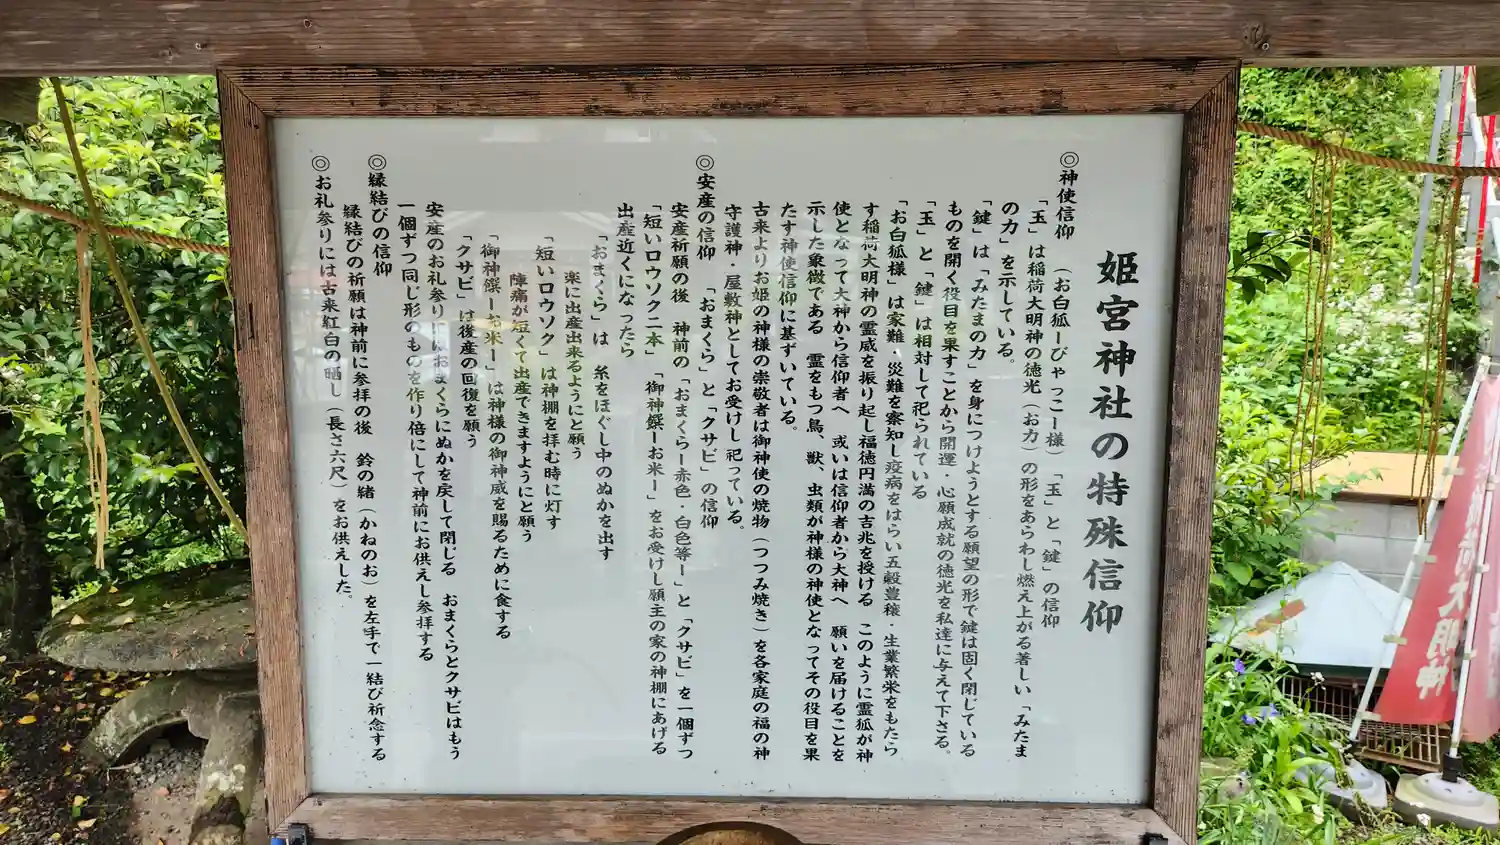 姫宮神社の特殊信仰
◎神使信仰　（お白狐ーびゃっこー様）「玉」と「鍵」の信仰
「玉」は稲荷大明神の徳光（お力）の形をあらわし燃え上がる著しい「みたま
の力」を示している。
「鍵」は「みたまの力」を身につけようとする願望の形で鍵は固く閉じている
ものを開く役目を果すことから開運・心願成就の徳光を私達に与えて下さる。
「玉」と「鍵」は相対して祀られている
「お白狐様」は家難・災難を察知し疫病をはらい五穀豊穣・生業繁栄をもたら
す稲荷大明神の霊威を振り起し福徳円満の吉兆を授ける　このように霊狐が神
使となって大神から信仰者へ　或いは信仰者から大神へ　願いを届けることを
示した象徴である　霊をもつ鳥、獣、虫類が神様の神使となってその役目を果
たす神使信仰に基ずいている。
古来よりお姫の神様の崇敬者は御神使の焼物（つつみ焼き）を各家庭の福の神
守護神・屋敷神としてお受けし祀っている。
◎安産の信仰　「おまくら」と「クサビ」の信仰
安産祈願の後　神前の「おまくらー赤色・白色等ー」と「クサビ」を一個ずつ
「短いロウソク二本」「御神饌ーお米ー」をお受けし願主の家の神棚にあげる
出産近くになったら
「おまくら」は　糸をほぐし中のぬかを出す
楽に出産出来るようにと願う
「短いロウソク」は神棚を拝む時に灯す
陣痛が短くて出産できますようにと願う
「御神饌ーお米ー」は神様の御神威を賜るために食する
「クサビ」は後産の回復を願う
安産のお礼参りにはおまくらにぬかを戻して閉じる　おまくらとクサビはもう
一個ずつ同じ形のものを作り倍にして神前にお供えし参拝する
◎縁結びの信仰
縁結びの祈願は神前に参拝の後　鈴の緒（かねのお）を左手で一結び祈念する
◎お礼参りには古来紅白の晒し（長さ六尺）をお供えした。
荷大明神